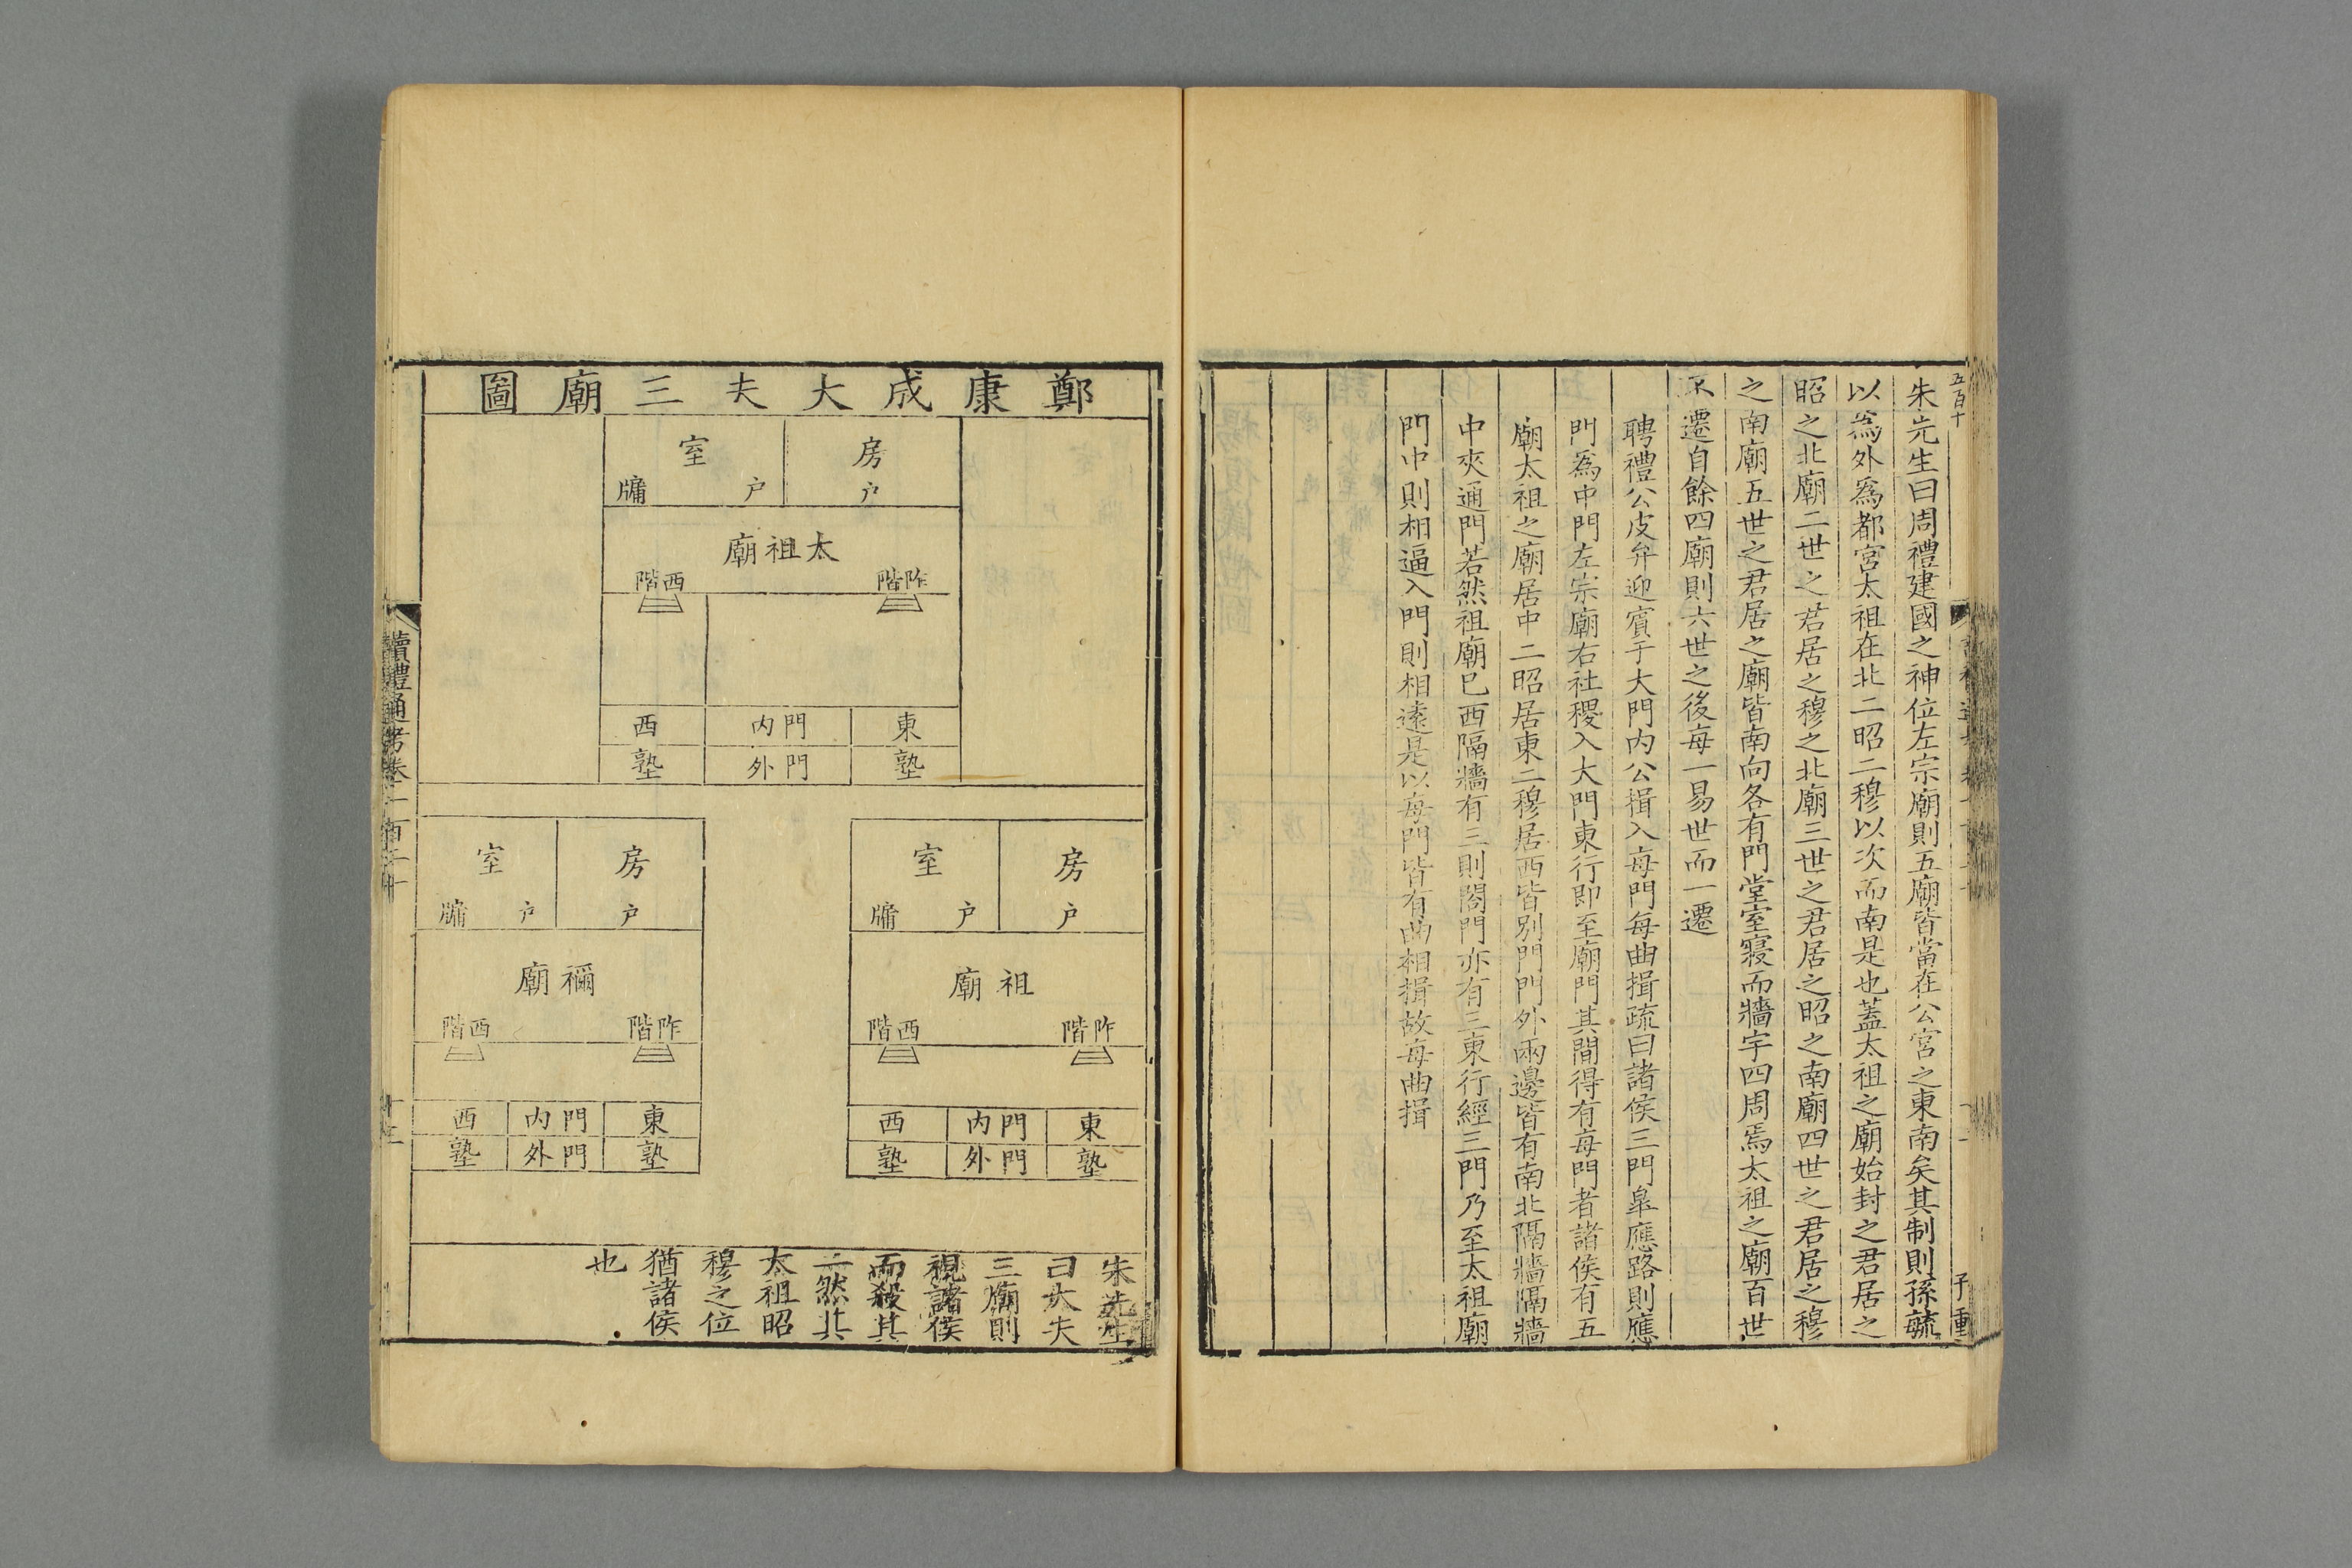 五百十
子重
朱先生曰周禮建國之神位左宗廟則五廟皆當在公宮之東南矣其制則孫毓
以爲外爲都宮太祖在北二昭二穆以次而南是也蓋太祖之廟始封之君居之
昭之北廟二世之君居之穆之北廟三世之君居之昭之南廟四世之君居之穆
之南廟五世之君居之廟皆南向各有門堂室寢而牆宇四周焉太祖之廟百世
不遷自餘四廟則六世之後每一易世而一遷
聘禮公皮弁迎賓于大門内公揖入每門每曲揖疏曰諸侯三門臯應路則應
門爲中門左宗廟右社稷入大門東行即至廟門其間得有每門者諸侯有五
廟太祖之廟居中二昭居東二穆居西皆别門門外兩邊皆有南北隔牆隔牆
中夾通門若然祖廟已西隔牆有三則閤門亦有三東行經三門乃至太祖廟
門中則相逼入門則相遠是以每門皆有曲相揖故每曲揖
鄭康成大夫三廟圖
房
户
室
户
牖
太祖廟
阼階
西階
東塾
門内
門外
西塾
房
户
室
户
牖
祖廟
阼階
西階
東塾
門内
門外
西塾
房
户
室
户
牖
禰廟
阼階
西階
東塾
門内
門外
西塾
朱先生
曰大夫
三廟則
視諸侯
而殺其
二然其
太祖昭
穆之位
猶諸侯
也
讀禮通考卷一百二十